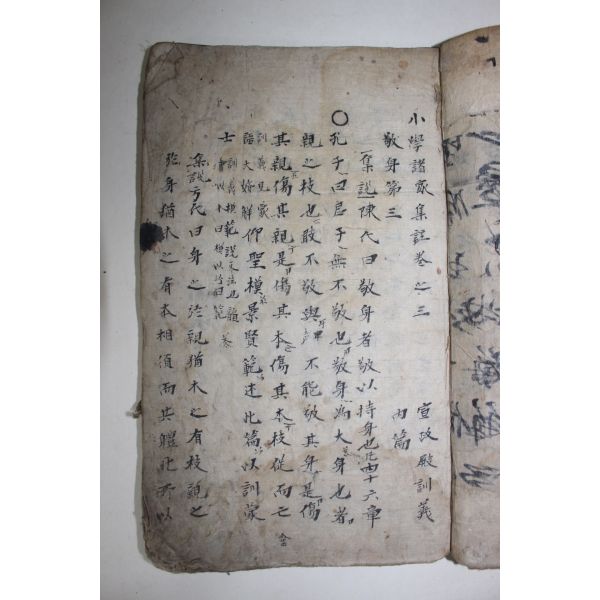 小學諸家集註卷之三 宣政殿訓義
敬身第三 內篇
集說 陳氏曰敬身者敬以持身也凡四十六章
○孔子曰君子無不敬也敬身爲大身也者
親之枝也敢不敬與 不能敬其身是傷
其親傷其親是傷其本傷其本枝從而亡
仰聖模景賢範述此篇以訓蒙
士
集說 方氏曰身之於親猶木之有枝親之
於身猶木之有本相須而共體此所以